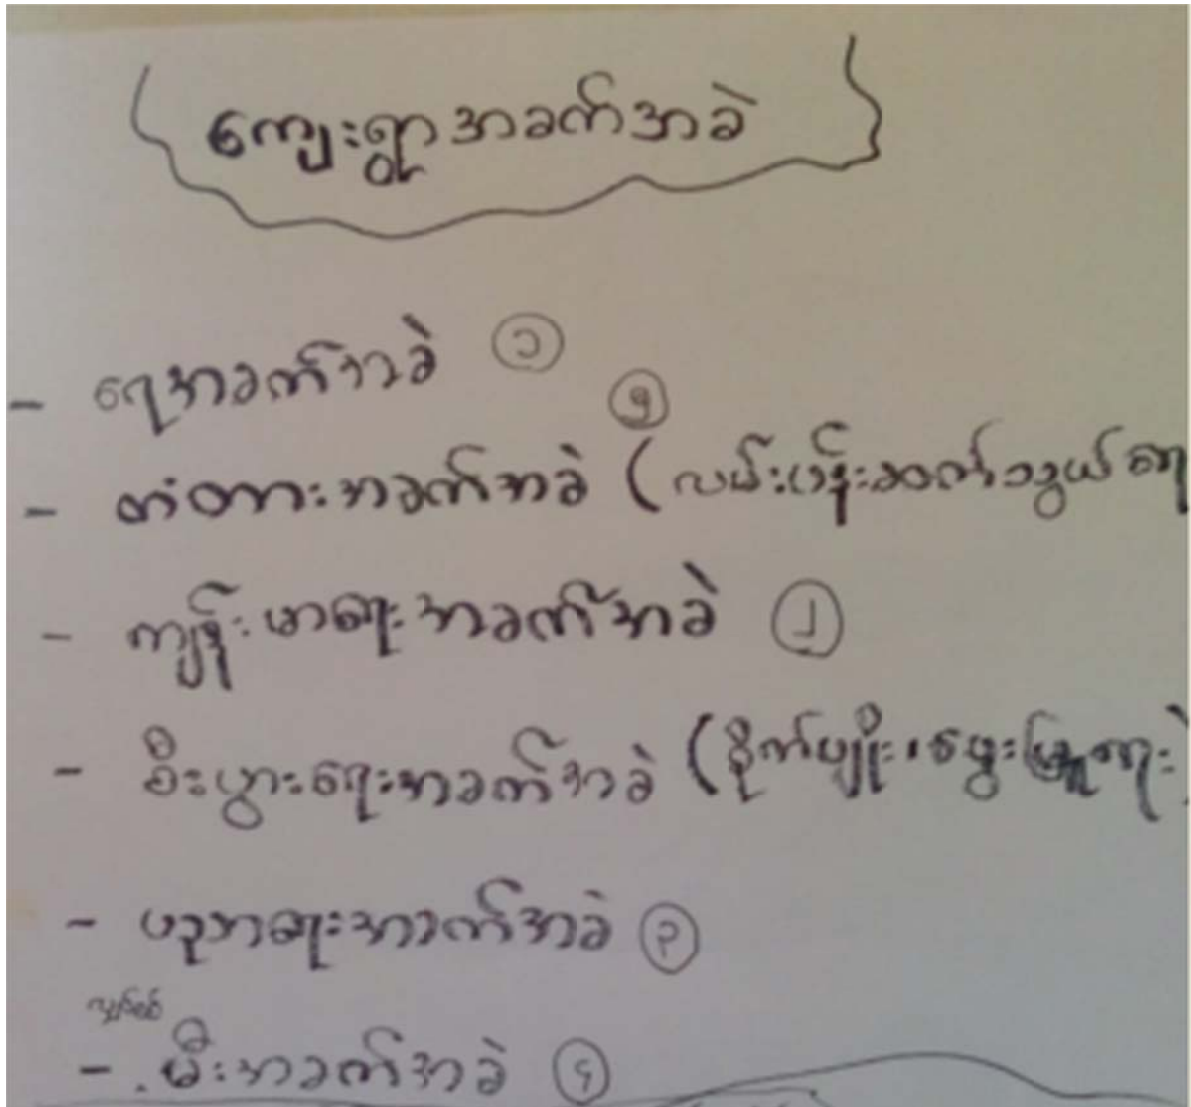 ကျေးရွာအခက်အခဲ
- ရေအခက်အခဲ ၁
- တံတားအခက်အခဲ (လမ်းပန်းဆက်သွယ်ရေ ၅
- ကျန်းမာရေးအခက်အခဲ ၂
- စီးပွားရေးအခက်အခဲ (စိုက်ပျိုး၊မွေးမြူရေး)
- ပညာရေးအခက်အခဲ ၃
လျှပ်စစ်
- မီးအခက်အခဲ ၄